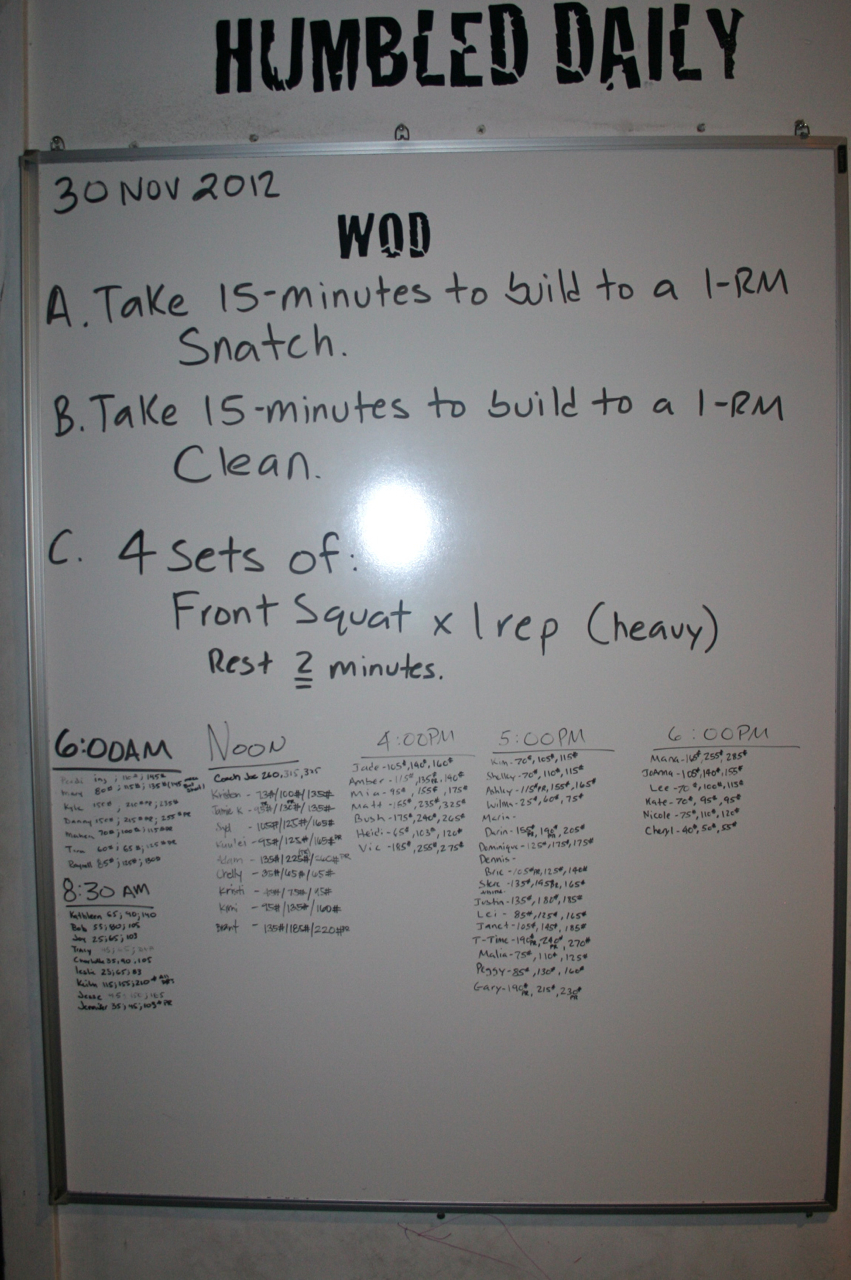 HUMBLED DAILY
30 NOV 2012
WOD
A. Take 15-minutes to build to a 1-RM
Snatch.
B. Take 15-minutes to build to a 1-RM
Clean.
C. 4 sets of:
Front Squat x 1 rep (heavy)
Rest 2 minutes.
6:00AM
Kyle
Danny
8:30 AM
Kathleen 65, 90, 140
Bob
Joy 25, 65, 103
Tracy
Charlotte 55, 90, 105
Jesse
Jennifer 35, 95, 103# PR
NOON
Coach Joe 260, 315, 335
Kristen - 73#/100#/135#
Jamie K
Syd - 105#/125#/165#
Adam - 135#/225#
Chelly - 35#/65#/65#
Kristi
Kami - 95#/135#/160#
Brant - 135#/185#/220#
4:00PM
Jade - 105#, 140#, 160#
Amber - 115#, 135#, 140#
Mia - 95#, 155#, 175#
Matt - 165#, 235#, 325#
Bush - 175#, 240#, 265#
Heidi - 65#, 103#, 120#
Vic - 185#, 255#, 275#
5:00PM
Kim - 70#, 105#, 115#
Shelley - 70#, 110#, 115#
Ashley - 115# PR, 155#, 165#
Wilma - 25#, 60#, 75#
Maria -
Darin - 155#, 190#, 205#
Dominique - 125#, 175#, 175#
Dennis -
Brie - 105# PR, 125#, 140#
Steve - 135#, 145# PR, 165#
Justin - 135#, 180#, 185#
Lei - 85#, 125#, 165#
Janet - 105#, 145#, 185#
T-Time - 190# PR, 240# PR, 270#
Malia - 75#, 110#, 125#
Peggy - 85#, 130#, 160#
Gary - 190# PR, 215#, 230# PR
6:00PM
Mana - 165#, 255#, 285#
JoAnna - 105#, 140#, 155#
Lee - 70#, 100#, 115#
Kate - 70#, 95#, 95#
Nicole - 75#, 110#, 120#
Cheryl - 40#, 50#, 55#